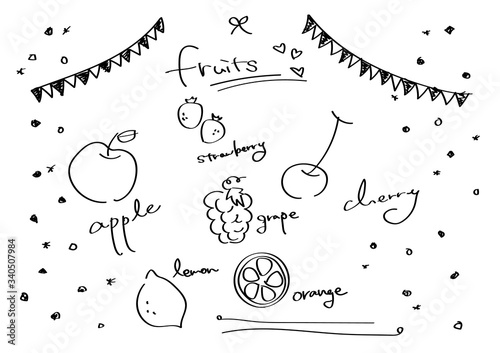 fruits
strawberry
apple
grape
cherry
lemon
orange
Adobe Stock | #340507984